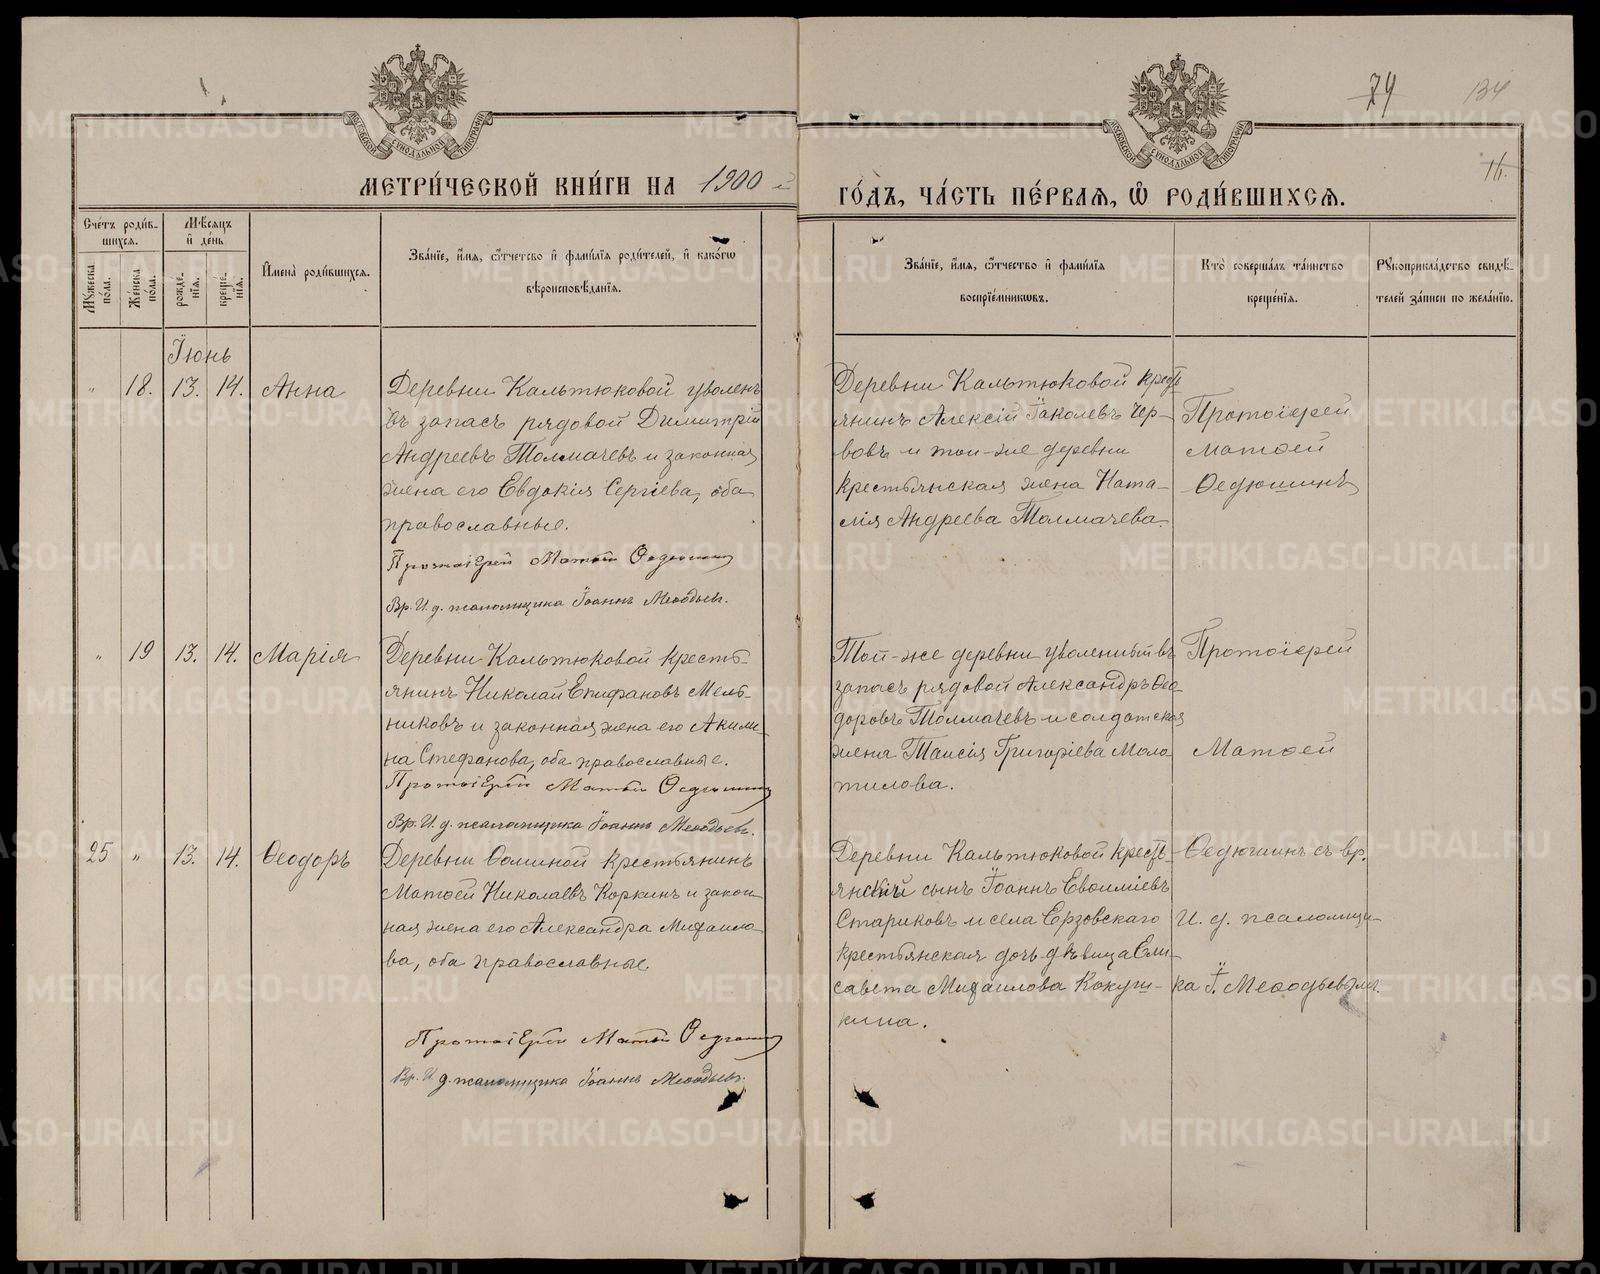 74 134
16.
МОСКОВСКОЙ СѴНОДАЛЬНОЙ ТИПОГРАФІИ
МОСКОВСКОЙ СѴНОДАЛЬНОЙ ТИПОГРАФІИ
МЕТРИ́ЧЕСКОЙ КНИ́ГИ НА 1900 й
ГО́ДЪ, ЧА́СТЬ ПЕ́РВАЯ, Ѡ РОДИ́ВШИХСЯ.
Сче́тъ роди́в-
шихся.
Мꙋжеска по́ла.
Же́нска по́ла.
Мѣ́сяцъ и де́нь
рожде́нїя.
креще́нїя.
Имена̀ роди́вшихся.
Зва́нїе, и́мя, ѻ́тчетсво и фами́лїя роди́телей, и како́гѡ
вѣроисповѣ́данїя.
Зва́нїе, и́мя, ѻ́тчество и фами́лїя
воспрїе́мникѡвъ.
Кто̀ соверша́лъ та́инство
креще́нїя.
Рꙋкоприкла́дство свидѣ́-
телей за́писи по жела́нїю.
Іюнь
" 18. 13. 14. Анна
Деревни Кальтюковой уволен.
въ запасъ рядовой Димитрій
Андреевъ Толмачевъ и законная
жена его Евдокія Сергіева, оба
православные.
Протоіерей Матѳей Ѳедюшинъ
Вр. И. д. псаломщика Іоаннъ Меѳодьевъ.
Деревни Кальтюковой крест-
янинъ Алексій Іаколевъ Чер-
вовъ и той-же деревни
крестьянская жена Ната-
лія Андреева Толмачева.
Протоіерей
Матѳей
Ѳедюшинъ
" 19 13. 14. Марія
Деревни Кальтюковой кресть-
янинъ Николай Епифановъ Мель-
никовъ и законная жена его Акили-
на Стефанова, оба православные.
Протоіерей Матѳей Ѳедюшинъ
Вр. И. д. псаломщика Іоаннъ Меѳодьевъ.
Той-же деревни уволенный въ
запасъ рядовой Александръ Ѳео-
доровъ Толмачевъ и солдатская
жена Таисія Григоріева Моло-
тилова.
Протоіерей
Матѳей
25 " 13. 14. Ѳеодоръ
Деревни Соминой крестьянинъ
Матѳей Николаевъ Коркинъ и закон-
ная жена его Александра Михаило-
ва, оба православные.
Протоіерей Матѳей Ѳедюшинъ
Вр. И. д. псаломщика Іоаннъ Меѳодьевъ.
Деревни Кальтюковой крест-
янскій сынъ Іоаннъ Евѳиміевъ
Стариковъ и села Ерзовскаго
крестьянская дочь дѣвица Ели-
савета Михаилова Кокуш-
кина.
Ѳедюшинъ съ вр.
И. д. псаломщи-
ка І. Меѳодьевымъ.
METRIKI.GASO-URAL.RU